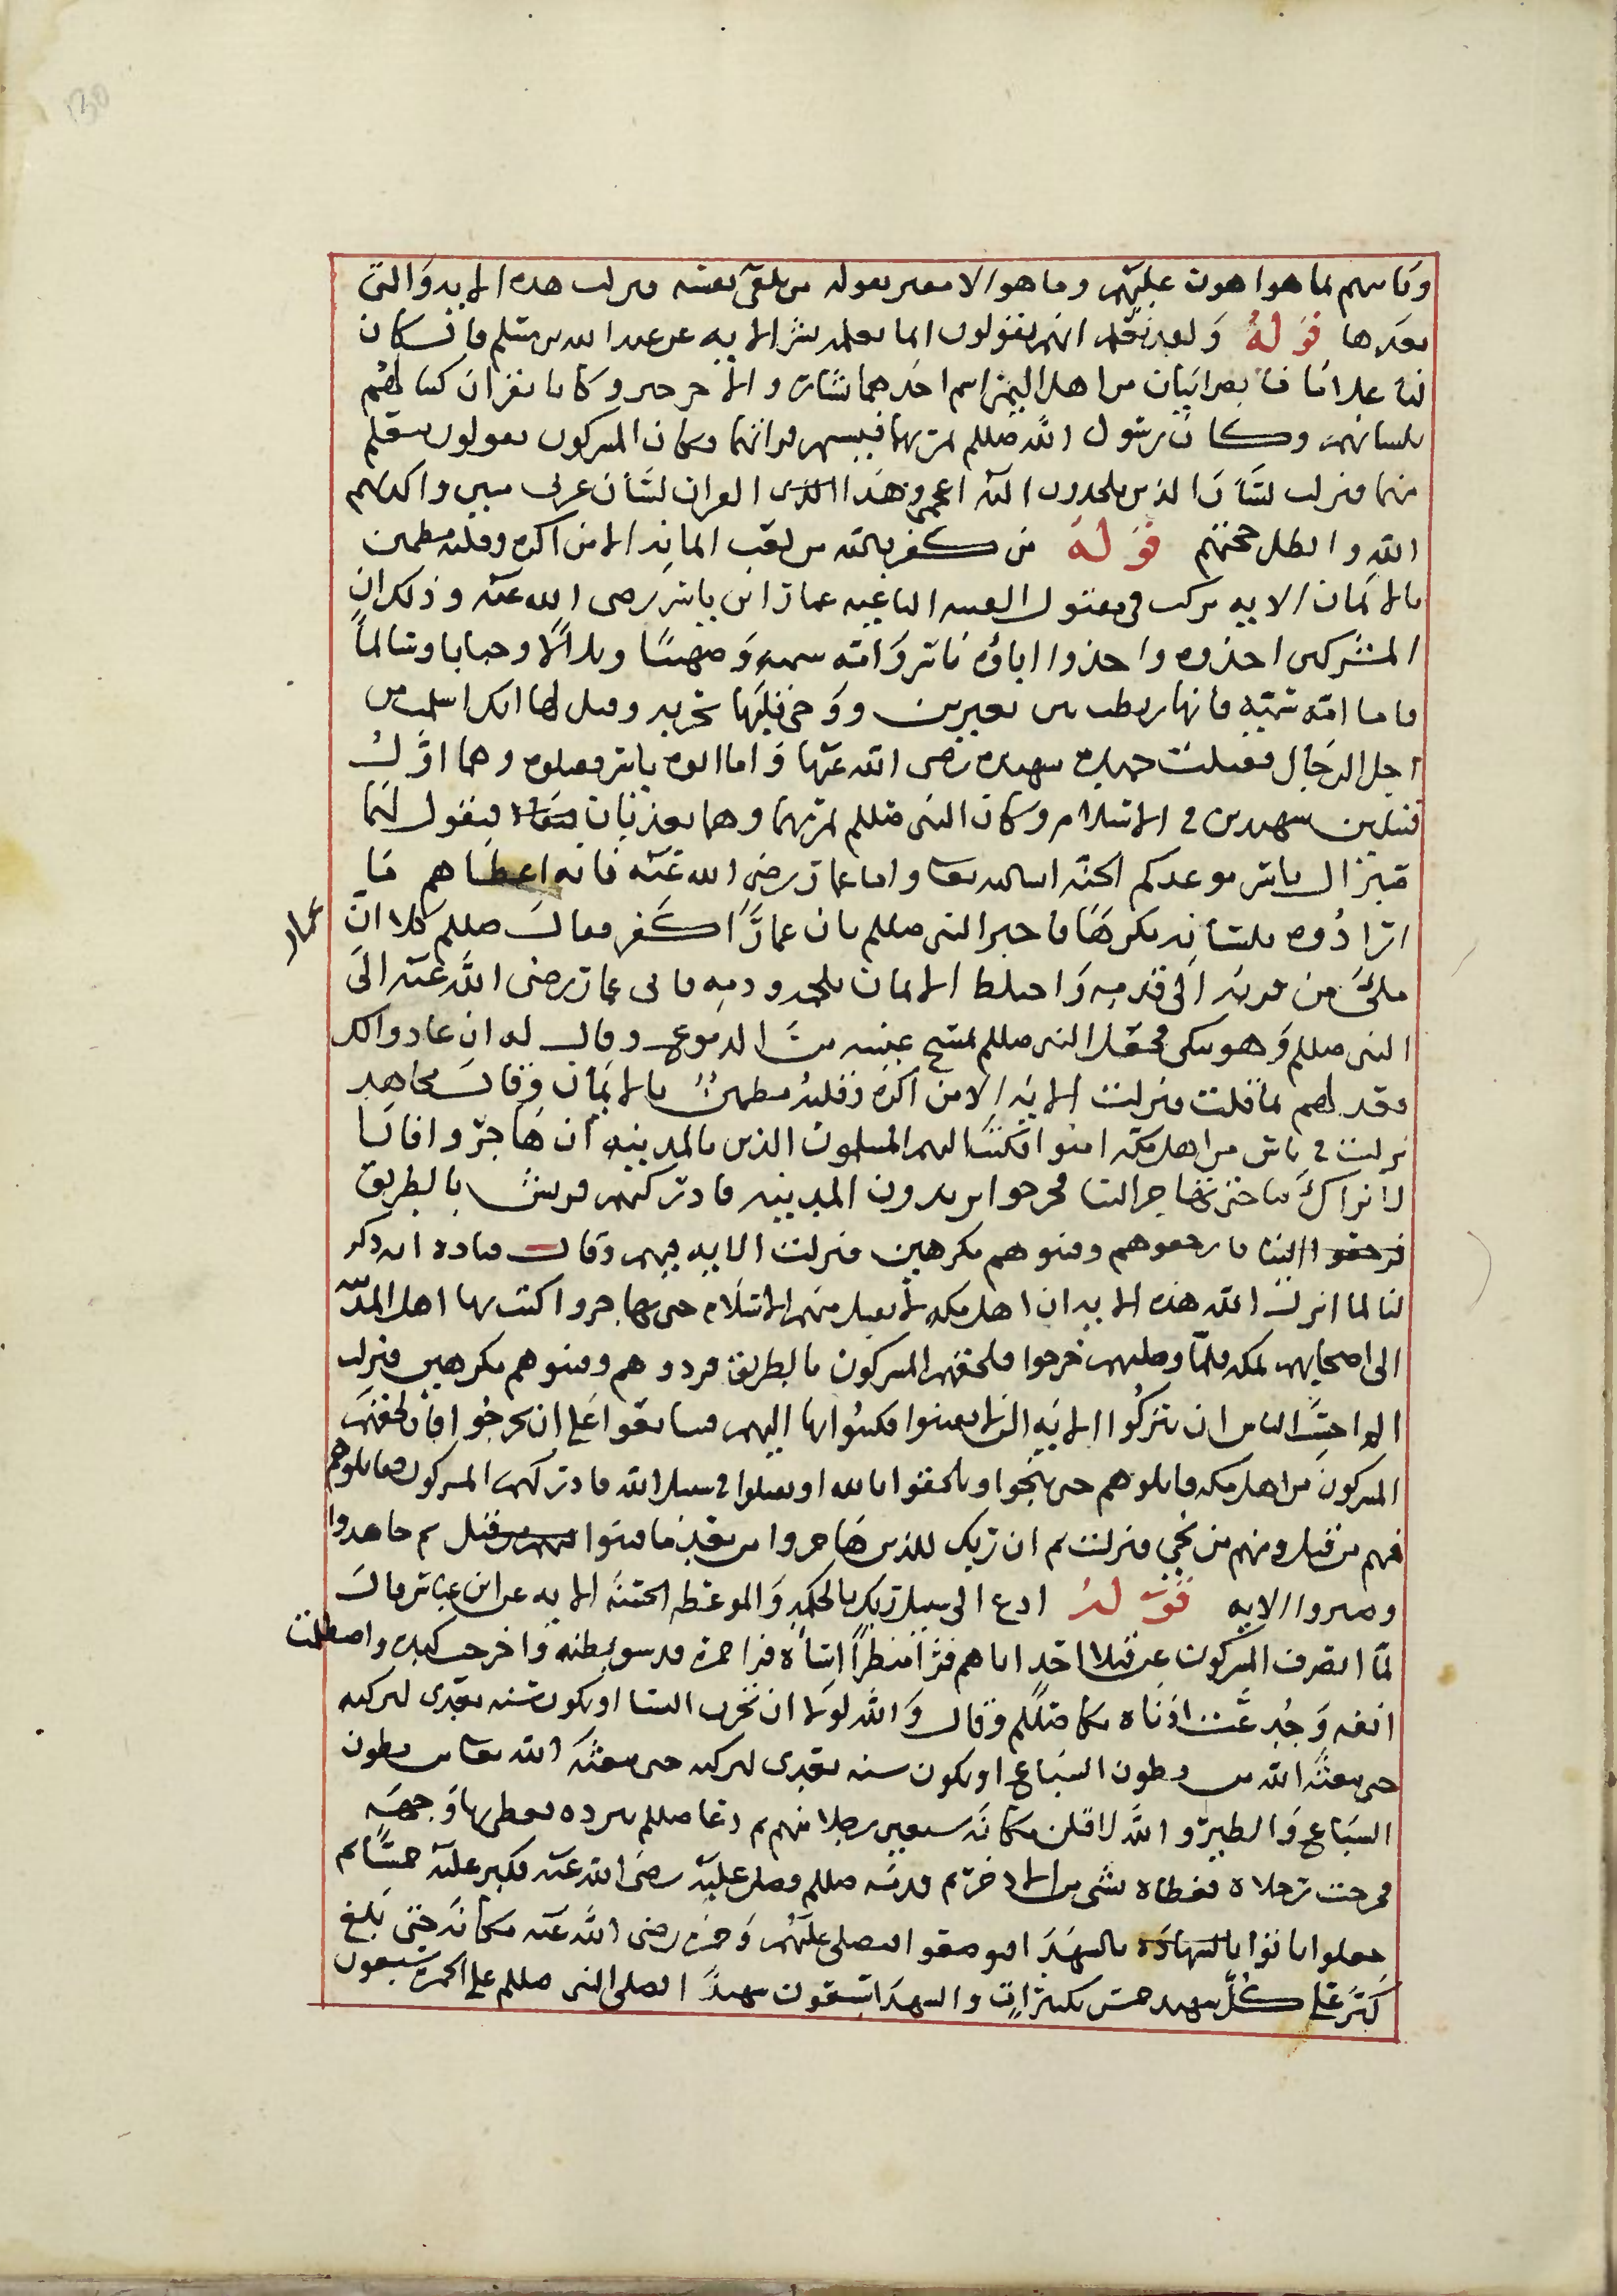 130
وياتيهم بما هوا هون عليهم وما هو الا مفتر يقوله من تلقى نفسه فنزلت هذه الايه والتي
بعدها قوله ولقد نعلم انهم يقولون انما يعلمه بشر الايه عن عبد الله بن مسلم قال كان
لنا غلامان نصرانيان من اهل اليمن اسم احدهما يسار والاخر جبر وكانا يقران كتبا لهم
بلسانهم وكان رسول الله صللم يمر بهما فيسمع قراتهما وكان المشركون يقولون يتعلم
منهما فنزلت لسان الذين يلحدون اليه اعجمي وهذا القران لسان عربي مبين واكذبهم
الله وابطل حجتهم قوله من كفر بالله من بعد ايمانه الا من اكره وقلبه مطمين
بالايمان الايه نزلت في مقتول الفيه الباغيه عمار ابن ياسر رضى الله عنه وذلك ان
المشركين اخذوه واخذوا اباوه ياسر وامه سميه وصهيبا وبلالا وخبابا وسالما
فاما امه سميه فانها ربطت بين بعيرين ووجي قبلها بحربه وقيل لها انك اسلمت من
اجل الرجال فقتلت حميده شهيده رضى الله عنها واما ابوه ياسر فقتلوه وهما اول
قتيلين شهيدين في الاسلام وكان النبى صللم يمر بهما وهما يعذبان فيقول لهما
صبرا ال ياسر موعدكم الجنه ان شا الله تعا واما عمار رضى الله عنه فانه اعطاهم ما
ارادوه بلسانه مكرها فاخبر النبى صللم بان عمارا كفر فقال صللم كلا ان
عمار
ملئ من قرنه الى قدميه واختلط الايمان بلحمه ودمه فاتى عمار رضى الله عنه الى
النبى صللم وهو يبكى فجعل النبى صللم يمسح عينيه من الدموع وقال له ان عادوا لك
فعد لهم بما قلت فنزلت الايه الا من اكره وقلبه مطمين بالايمان وقال مجاهد
نزلت في ناس من اهل مكه امنوا فكتب اليهم المسلمون الذين بالمدينه ان هاجروا فانا
لا نراكم منا حتى تهاجروا الينا فخرجوا يريدون المدينه فادركتهم قريش بالطريق
فارجعوهم وفتنوهم مكرهين فنزلت الايه فيهم وقال قتاده انه ذكر
لنا لما انزل الله هذه الايه ان اهل مكه لا يقبل منهم الاسلام حتى يهاجروا كتب بها اهل المدينه
الى اصحابهم بمكه فلما وصلهم خرجوا فلحقهم المشركون بالطريق فردوهم وفتنوهم مكرهين فنزلت
احسب الناس ان يتركوا الايه فكتبوا بها اليهم فتبايعوا على ان يخرجوا فان لحقهم
المشركون من اهل مكه قاتلوهم حتى ينجوا ويلحقوا بالله او يقتلوا في سبيل الله فادركهم المشركون فقاتلوهم
فمنهم من قتل ومنهم من نجي فنزلت ثم ان ربك للذين هاجروا من بعد ما فتنوا ثم جاهدوا
وصبروا الايه قوله ادع الى سبيل ربك بالحكمه والموعظه الحسنه الايه عن ابن عباس قال
لما انصرف المشركون عن قتلا احد اتاهم فرا منظرا اساه فرا حمزه قد شق بطنه واخرجت كبده واصطلمت
انفه وجدعت اذناه بكا صللم وقال والله لولا ان تحزن النسا او يكون سنه بعدي لتركته
حتى يبعثه الله من بطون السباع او يكون سنه بعدي لتركته حتى يبعثه الله تعا من بطون
السباع والطير والله لاقتلن مكانه سبعين رجلا منهم ثم دعا صللم ببرده فغطى بها وجهه
فخرجت رجلاه فغطاه بشى من الاذخر ثم قدمه صللم وصلى عليه رضى الله عنه فكبر عليه خمسا ثم
جعلوا ياتوا بالشهدا فيوضعوا ليصلى عليهم وحمزه رضى الله عنه مكانه حتى بلغ
كبر على كل شهيد خمس تكبيرات والشهدا سبعون شهيدا فصلى النبى صللم على الحمزه سبعون